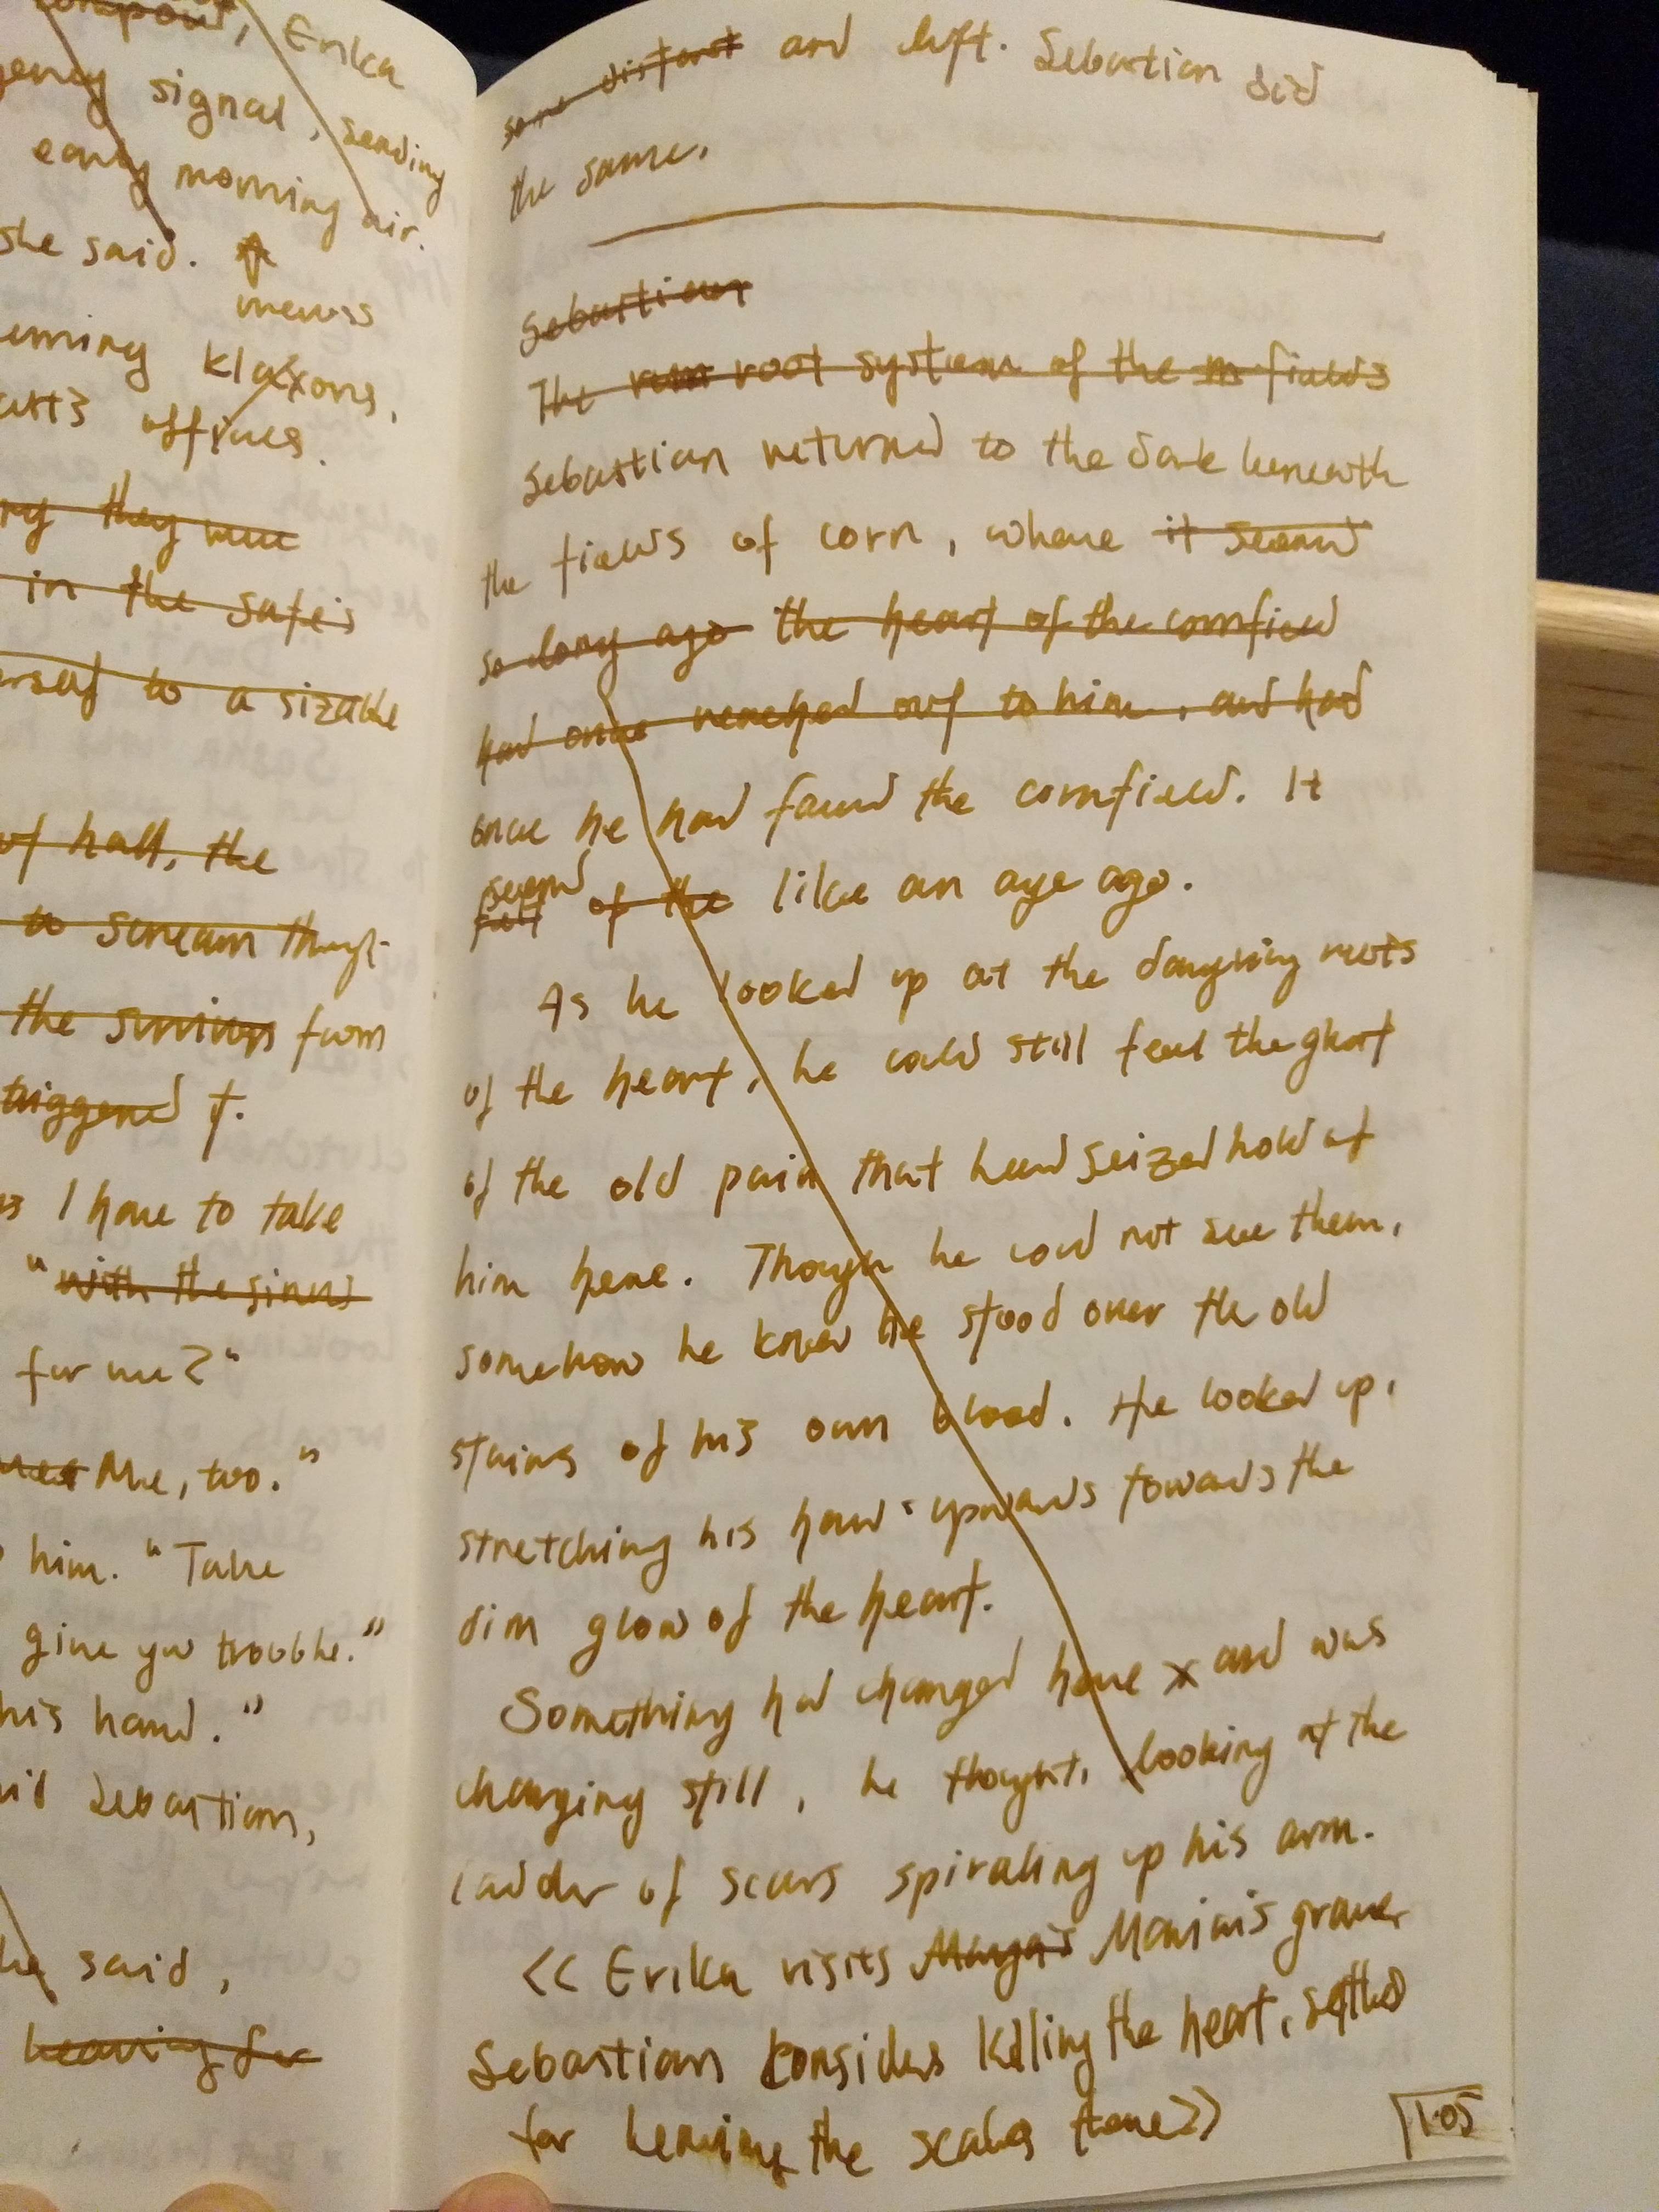 compound, Erika
signal, sending
early morning air.
she said.
klaxons,
offices.
they
in the safe's
to a sizable
of hall, the
to scream though
the survivors from
triggered it.
I have to take
"with the
for me?"
Me, too."
him. "Take
give you trouble."
his hand."
Sebastian,
he said,
heaving for
some distant and left. Sebastian did
the same.
Sebastian
The root system of the fields
Sebastian returned to the dark beneath
the fields of corn, where it seemed
so long ago the heart of the cornfield
had once reached out to him, and had
once he had found the cornfield. It
seemed
felt of the like an age ago.
As he looked up at the dangling roots
of the heart, he could still feel the ghost
of the old pain that had seized hold of
him here. Though he could not see them,
somehow he knew he stood over the old
stains of his own blood. He looked up,
stretching his hand upwards towards the
dim glow of the heart.
Something had changed here and was
changing still, he thought, looking at the
ladder of scars spiraling up his arm.
<< Erika visits Marya's grave,
Sebastian considers killing the heart, settled
for leaving the scales there>>
105